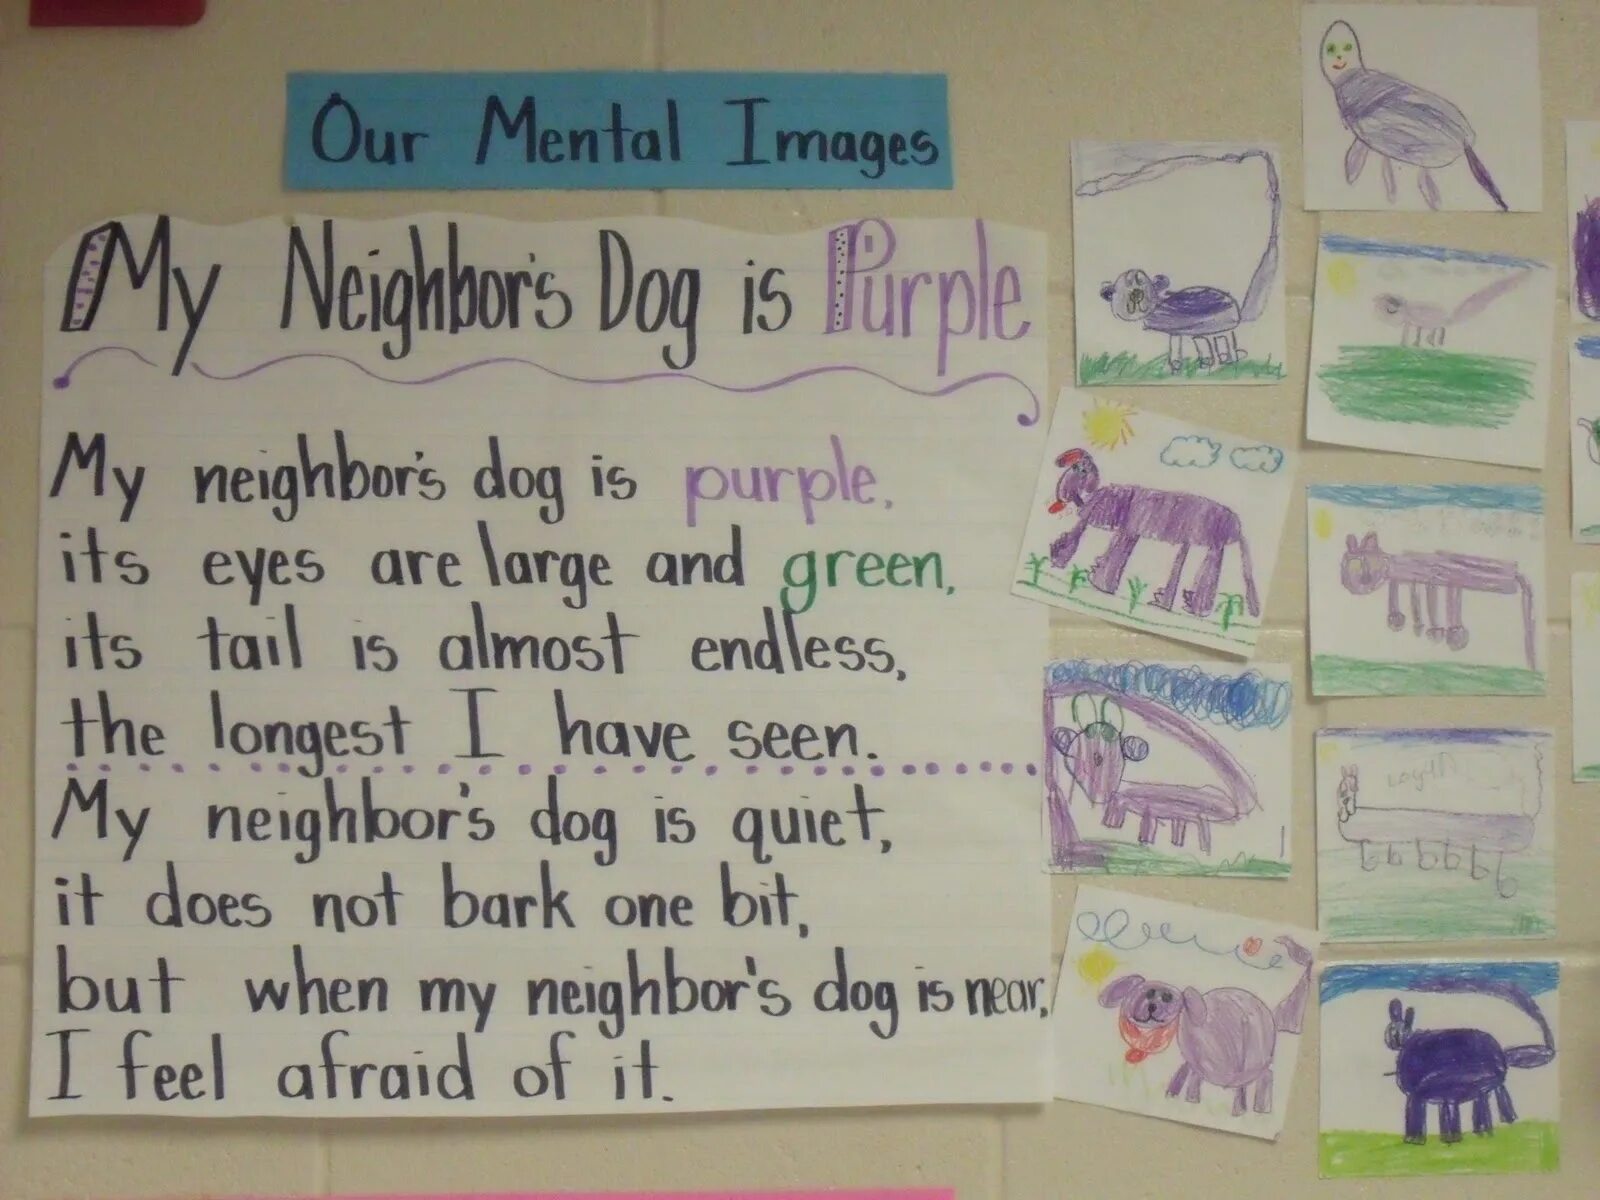 Our Mental Images
My Neighbor's Dog is Purple
My neighbor's dog is purple,
its eyes are large and green,
its tail is almost endless,
the longest I have seen.
My neighbor's dog is quiet,
it does not bark one bit,
but when my neighbor's dog is near,
I feel afraid of it.